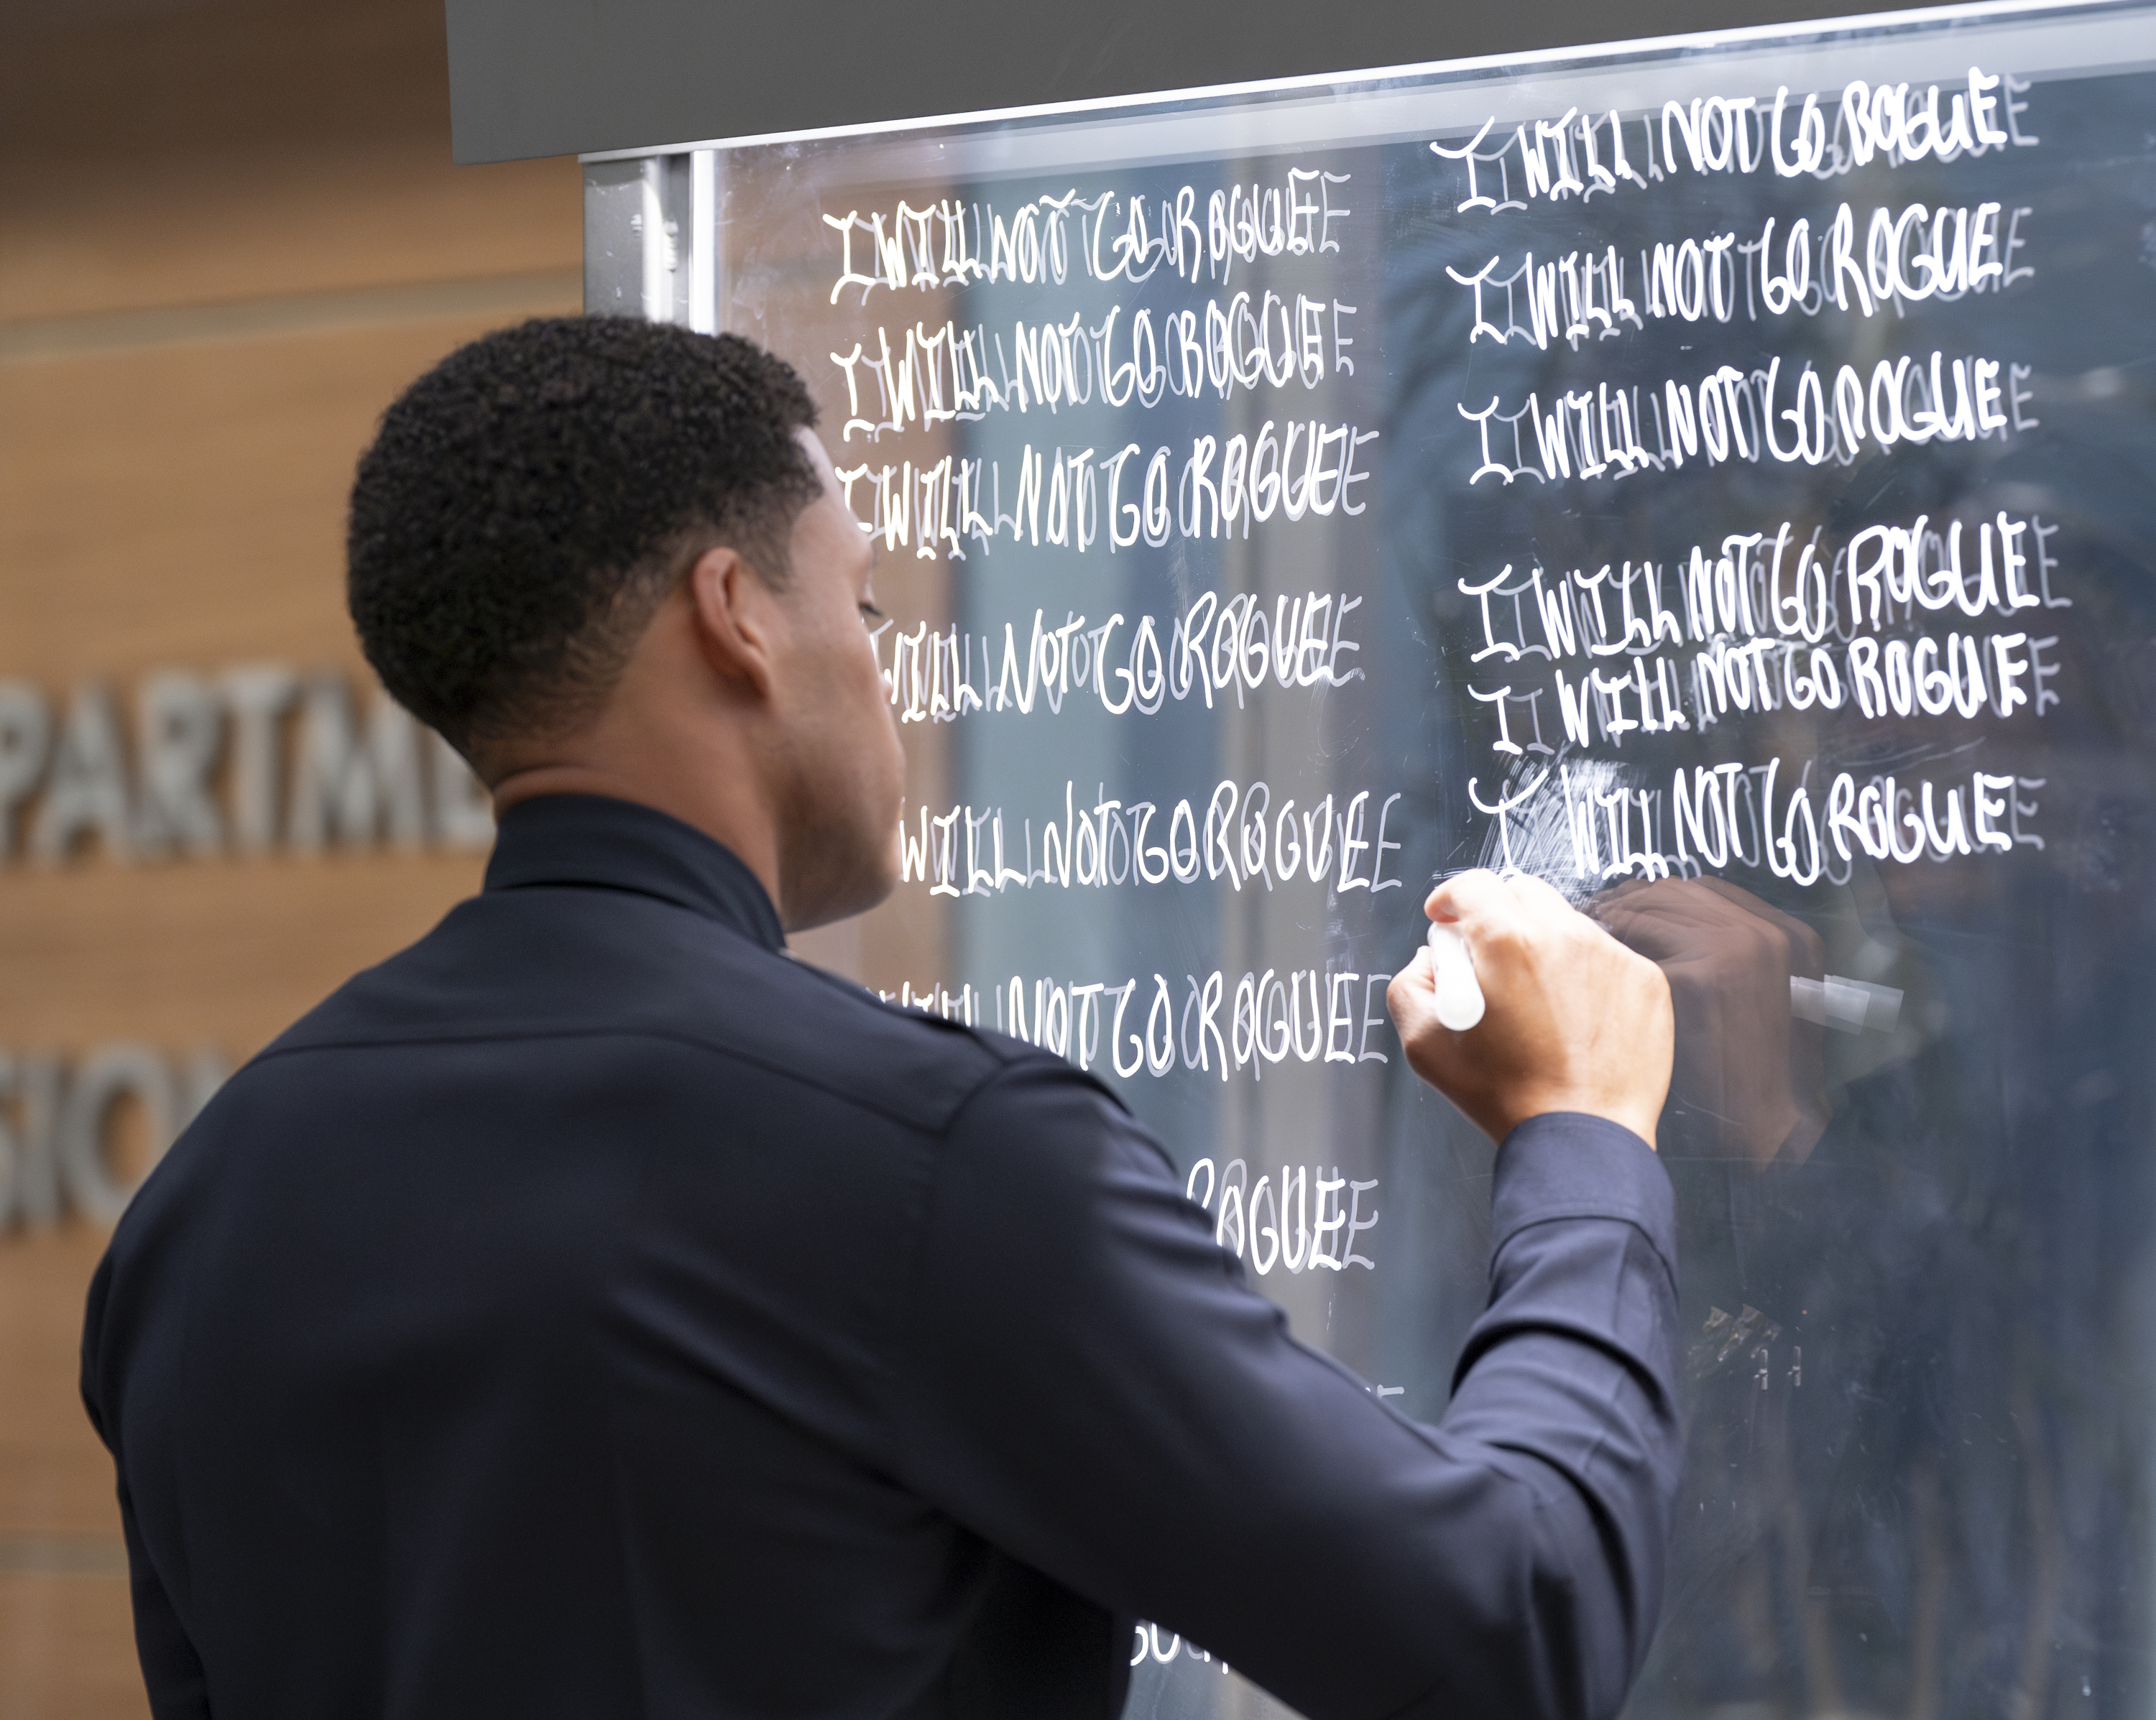 PARTME
SION
I WILL NOT GO ROGUE
I WILL NOT GO ROGUE
I WILL NOT GO ROGUE
WILL NOT GO ROGUE
WILL NOT GO ROGUE
WILL NOT GO ROGUE
ROGUE
I WILL NOT GO ROGUE
I WILL NOT GO ROGUE
I WILL NOT GO ROGUE
I WILL NOT GO ROGUE
I WILL NOT GO ROGUE
I WILL NOT GO ROGUE